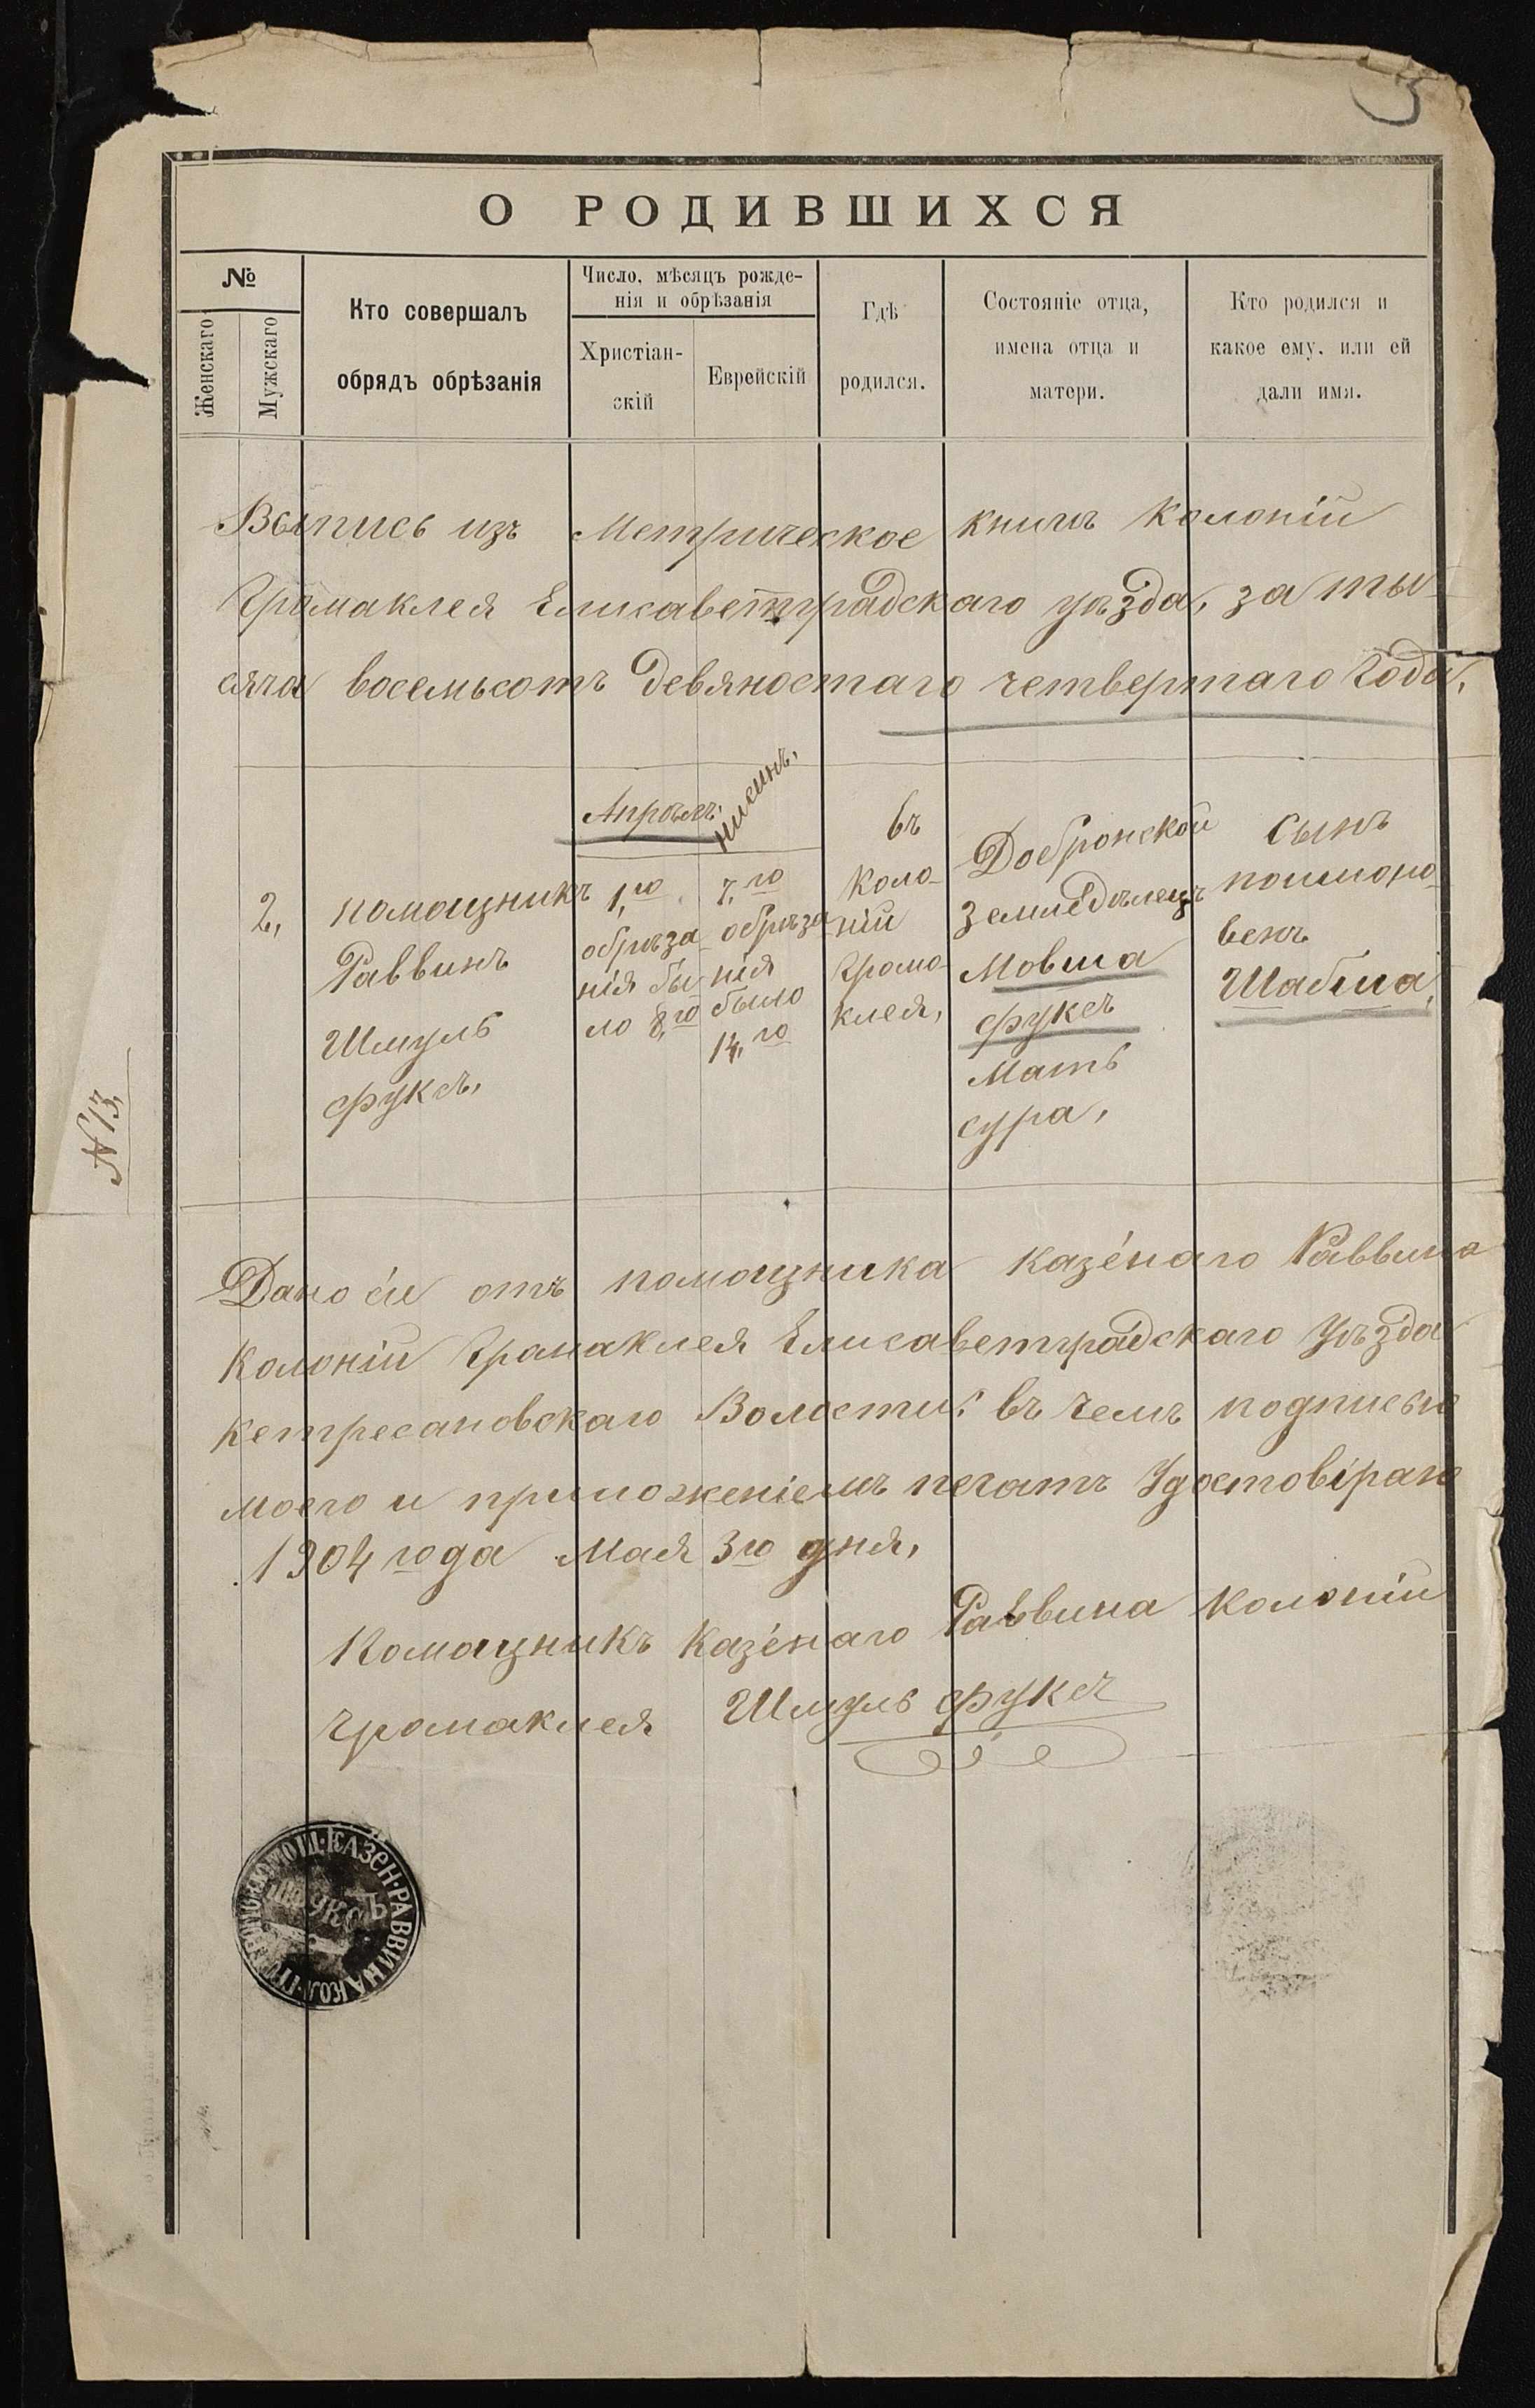 5
О РОДИВШИХСЯ
№
Женскаго
Мужскаго
Кто совершалъ
обрядъ обрѣзанія
Число, мѣсяцъ рожде-
нія и обрѣзанія
Христіан-
скій
Еврейскій
Гдѣ
родился.
Состояніе отца,
имена отца и
матери.
Кто родился и
какое ему. или ей
дали имя.
Выпись изъ Метрическое книгъ Колоній
Громаклея Елисаветградскаго уѣзда, за ты-
сяча восемьсотъ девяностаго четвертаго Года,
2,
помощникъ
Раввинъ
Шмуль
Фуксъ,
Апрѣль,
1,го
обрѣза
нія бы
ло 8,го
нисинъ,
7,го
обрѣза
нія
было
14,го
въ
Коло-
ніи
Громо-
клея,
Добронской
Земледѣлецъ
Мовша
Фуксъ
Мать
Сура,
Сынъ
поимоно-
венъ
Шабша,
№ 13,
Дано сіе отъ помощника казёнаго Раввина
Колоній Громаклея Елисаветградскаго Уѣзда
Кетресановскаго Волости: въ чемъ подписью
моего и приложеніемъ печать Удостовіраю
1904 года Мая 3го дня,
Помощникъ Казёнаго Раввина Колоніи
Громаклея Шмуль Фуксъ
ПОМОЩ·КАЗЕН·РАВВИНА КОЛ·
ФУКСЪ